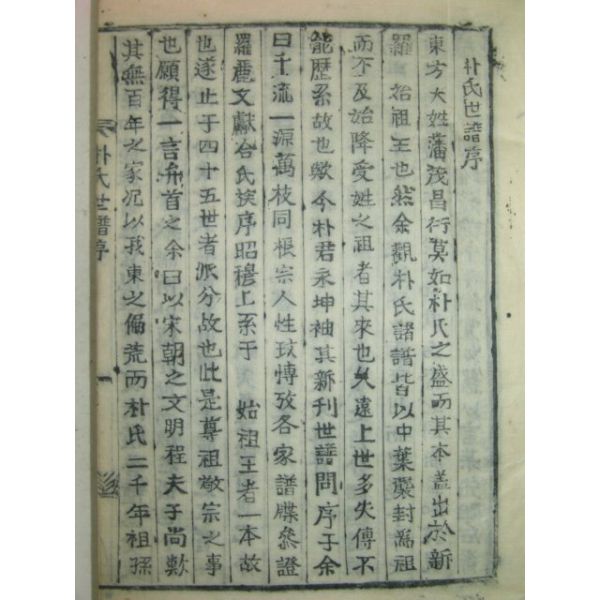 朴氏世譜序
東方大姓藩茂昌行莫如朴氏之盛而其本盖出於新
羅 始祖王也然余觀朴氏諸譜皆以中葉襲封爲祖
而不及始降受姓之祖者其來也久遠上世多失傳不
能歷系故也歟今朴君永坤袖其新刊世譜問序于余
曰千流一源萬枝同根宗人性玟博攷各家譜牒叅證
羅麗文獻合氏族序昭穆上系于 始祖王者一本故
也遂止于四十五世者派分故也此是尊祖敬宗之事
也願得一言弁首之余曰以宋朝之文明程夫子尚歎
其無百年之家况以我東之偏荒而朴氏二千年祖孫
朴氏世譜序 一